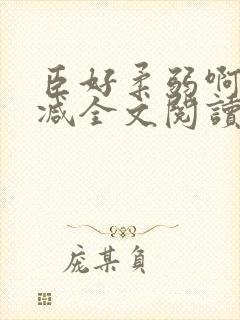 臣好柔弱啊
减全文閱讀
庞某负